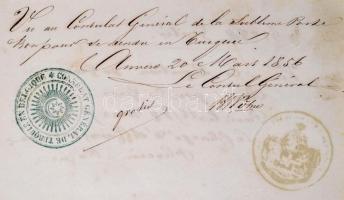 Vu au Consulat Général de la Sublime Porte
Bon pour se rendre en Turquie
Anvers 20 Mars 1856
Le Consul Général
gratis
CONSULAT GENERAL DE TURQUIE EN BELGIQUE